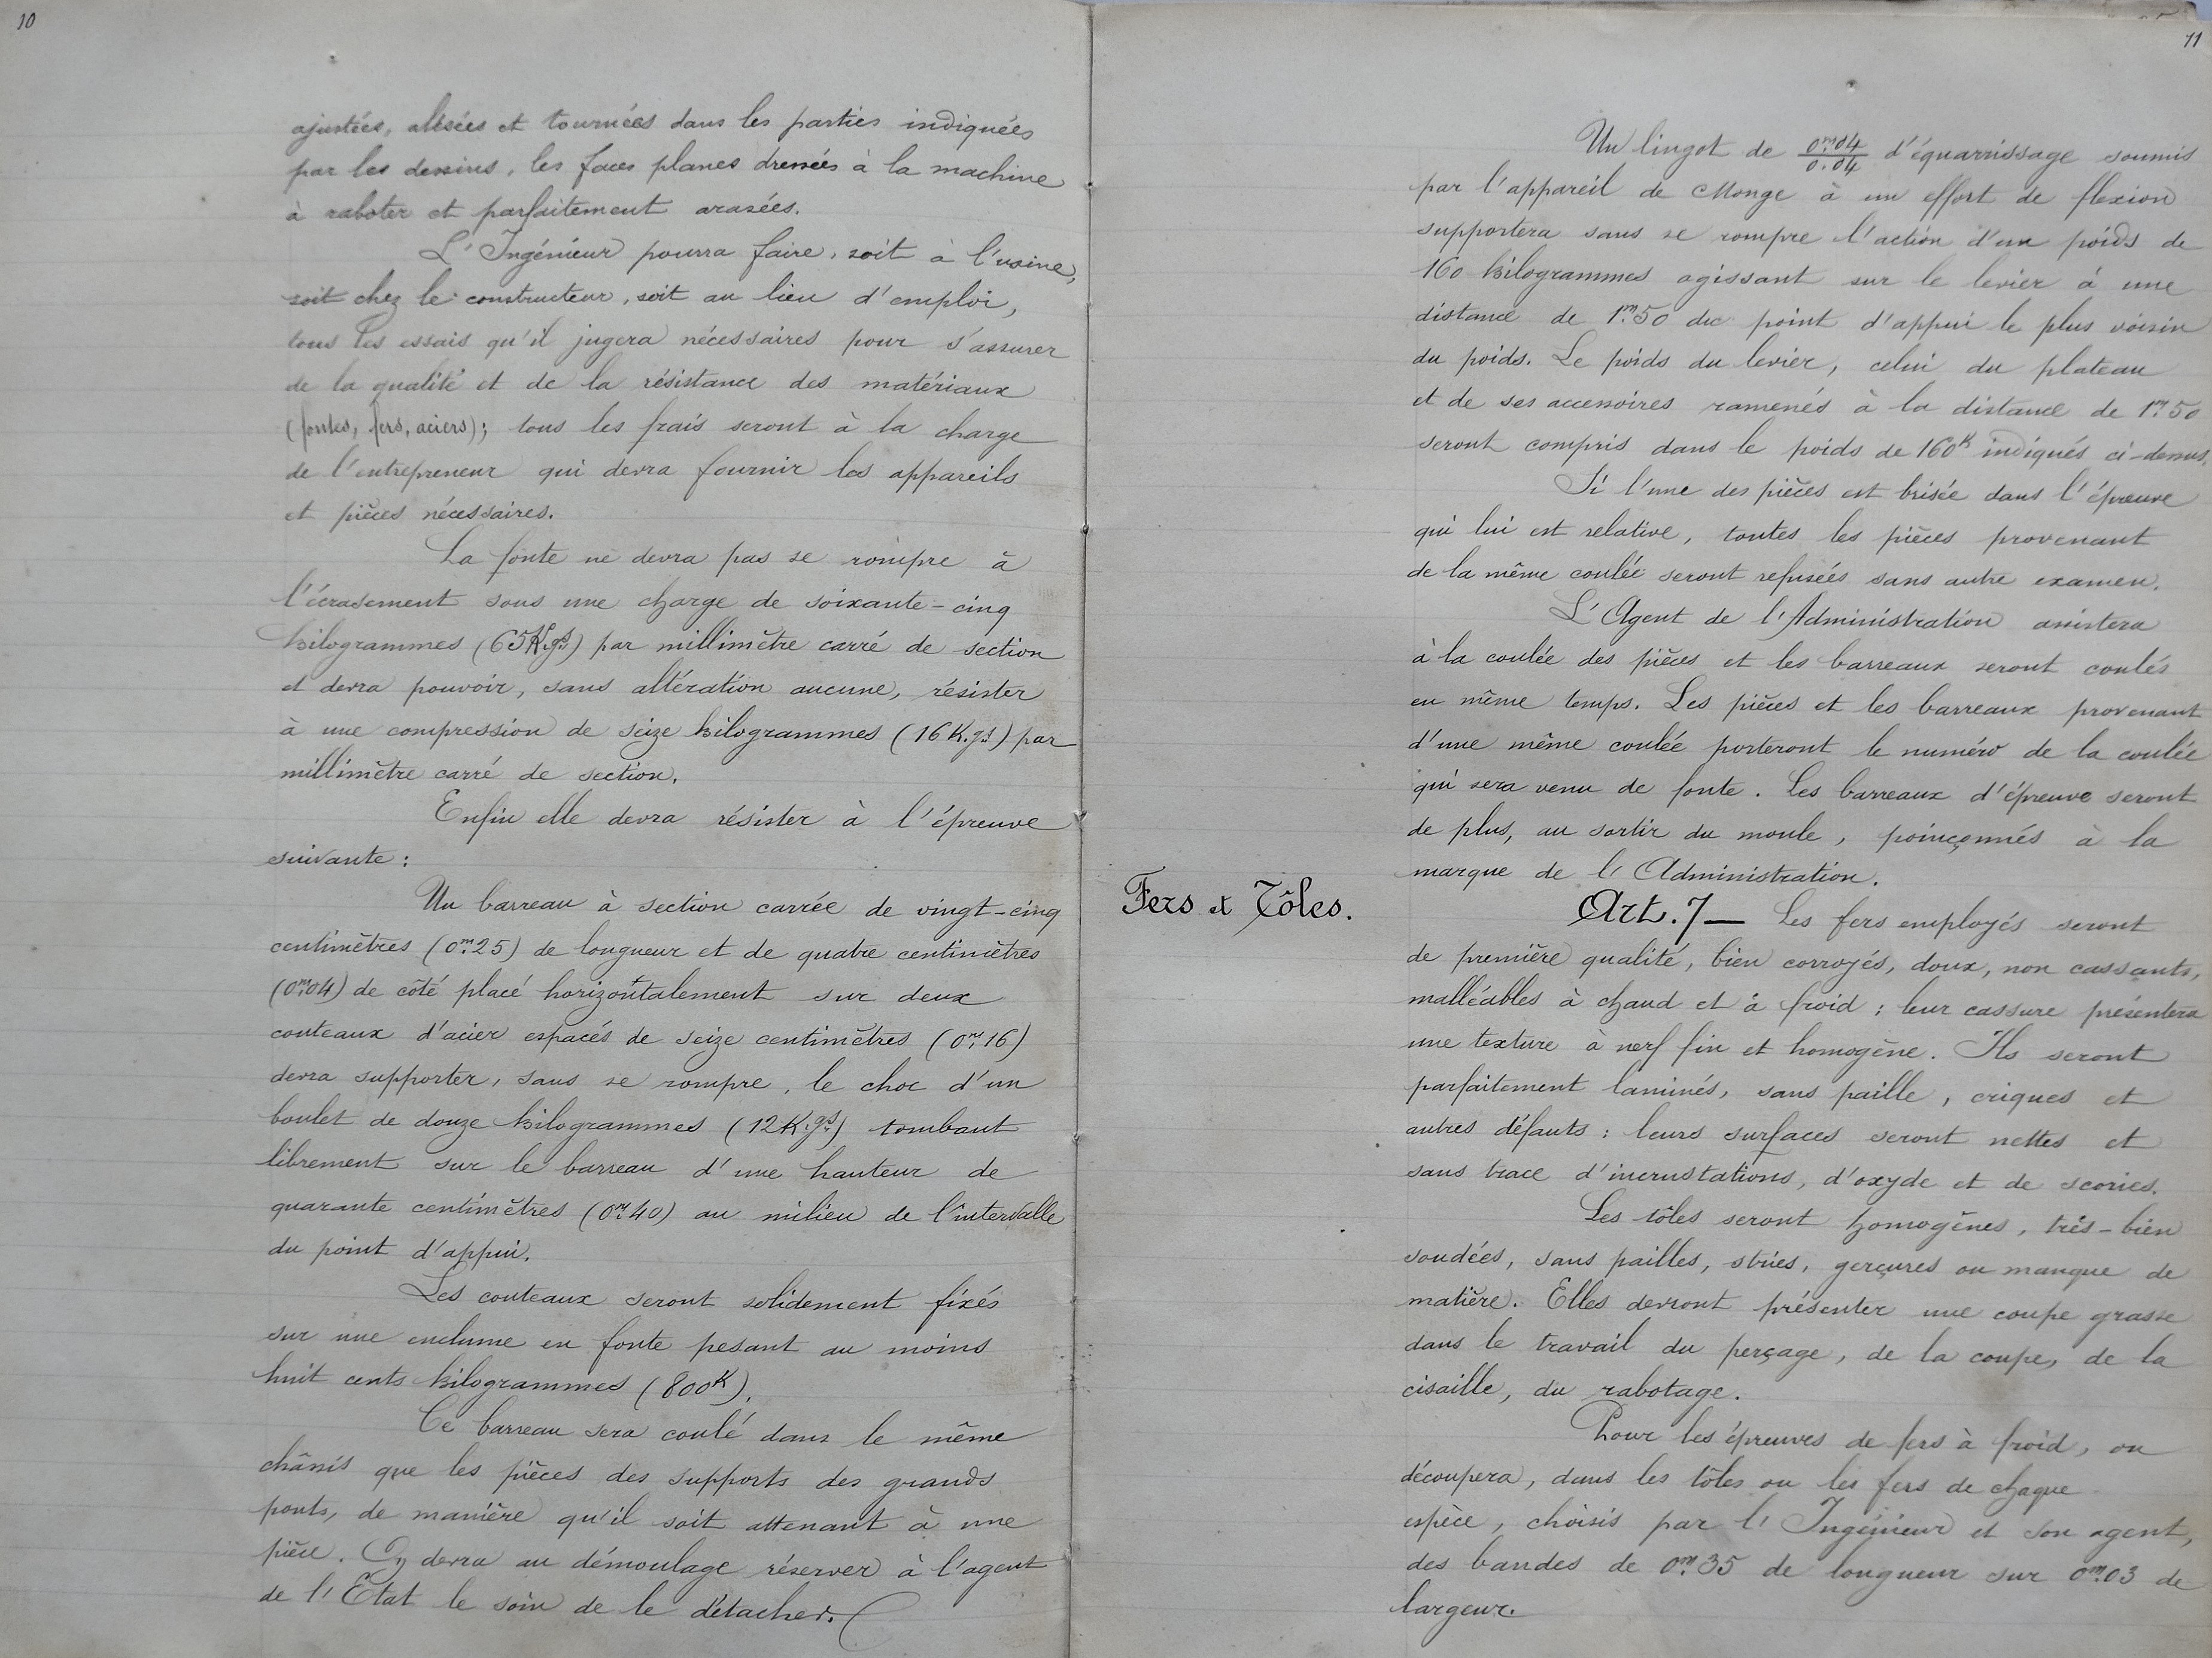 10
ajustées, alésées et tournées dans les parties indiquées
par les dessins, les faces planes dressées à la machine
à raboter et parfaitement arasées.
L'Ingénieur pourra faire, soit à l'usine,
soit chez le constructeur, soit au lieu d'emploi,
tous les essais qu'il jugera nécessaires pour s'assurer
de la qualité et de la résistance des matériaux
(fontes, fers, aciers); tous les frais seront à la charge
de l'entrepreneur qui devra fournir les appareils
et pièces nécessaires.
La fonte ne devra pas se rompre à
l'écrasement sous une charge de soixante-cinq
kilogrammes (65K.gs) par millimètre carré de section
et devra pouvoir, sans altération aucune, résister
à une compression de seize kilogrammes (16 K.gs) par
millimètre carré de section.
Enfin elle devra résister à l'épreuve
suivante :
Un barreau à section carrée de vingt-cinq
centimètres (0m.25) de longueur et de quatre centimètres
(0m.04) de côté placé horizontalement sur deux
couteaux d'acier espacés de seize centimètres (0m.16)
devra supporter, sans se rompre, le choc d'un
boulet de douze kilogrammes (12K.gs) tombant
librement sur le barreau d'une hauteur de
quarante centimètres (0m.40) au milieu de l'intervalle
du point d'appui.
Les couteaux seront solidement fixés
sur une enclume en fonte pesant au moins
huit cents kilogrammes (800K).
Ce barreau sera coulé dans le même
châssis que les pièces des supports des grands
ponts, de manière qu'il soit attenant à une
pièce. On devra au démoulage réserver à l'agent
de l'État le soin de le détacher.
11
Un lingot de 0m.04/0.04 d'équarrissage soumis
par l'appareil de Monge à un effort de flexion
supportera sans se rompre l'action d'un poids de
160 kilogrammes agissant sur le levier à une
distance de 1m.50 du point d'appui le plus voisin
du poids. Le poids du levier, celui du plateau
et de ses accessoires ramenés à la distance de 1m.50
seront compris dans le poids de 160K indiqués ci-dessus.
Si l'une des pièces est brisée dans l'épreuve
qui lui est relative, toutes les pièces provenant
de la même coulée seront refusées sans autre examen.
L'Agent de l'Administration assistera
à la coulée des pièces et les barreaux seront coulés
en même temps. Les pièces et les barreaux provenant
d'une même coulée porteront le numéro de la coulée
qui sera venu de fonte. Les barreaux d'épreuve seront
de plus, au sortir du moule, poinçonnés à la
marque de l'Administration.
Fers et Tôles.
Art. 7 — Les fers employés seront
de première qualité, bien corroyés, doux, non cassants,
malléables à chaud et à froid : leur cassure présentera
une texture à nerf fin et homogène. Ils seront
parfaitement laminés, sans paille, criques et
autres défauts : leurs surfaces seront nettes et
sans trace d'incrustations, d'oxyde et de scories.
Les tôles seront homogènes, très-bien
soudées, sans pailles, stries, gerçures ou manque de
matière. Elles devront présenter une coupe grasse
dans le travail du perçage, de la coupe, de la
cisaille, du rabotage.
Pour les épreuves de fers à froid, on
découpera, dans les tôles ou les fers de chaque
espèce, choisis par l'Ingénieur et son agent,
des bandes de 0m.35 de longueur sur 0m.03 de
largeur.